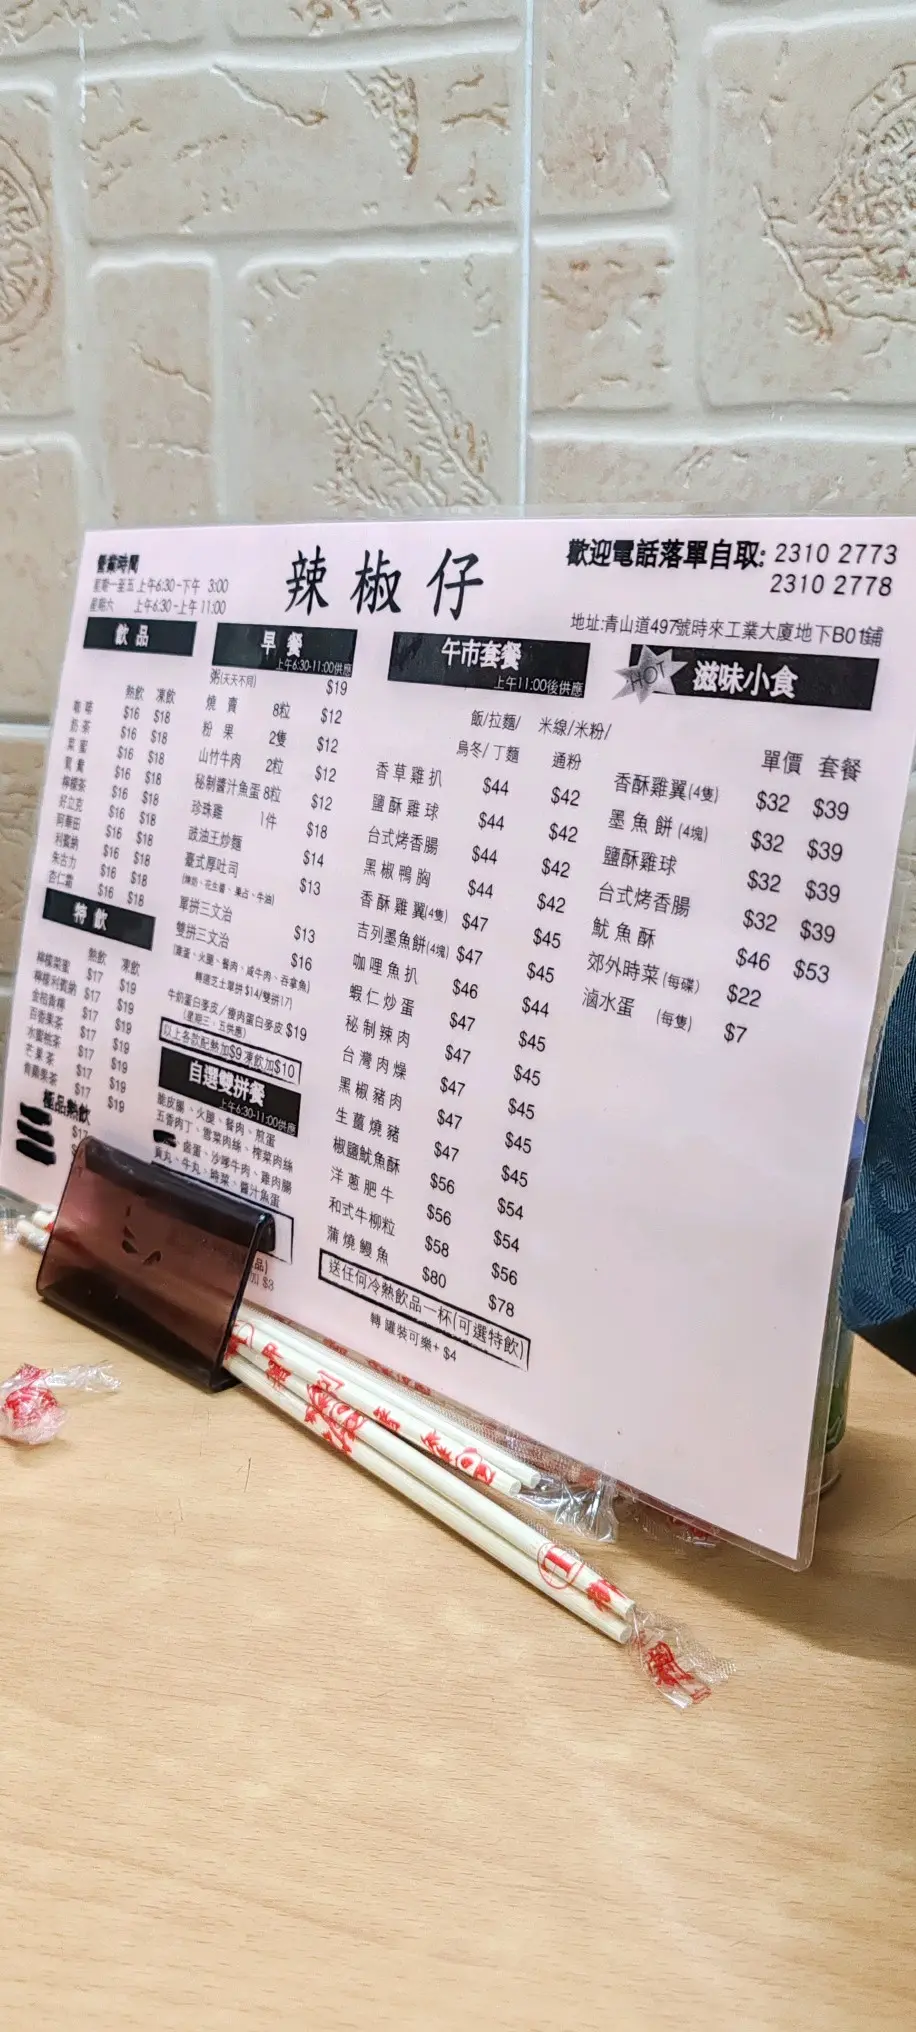 營業時間
星期一至五 上午6:30-下午 3:00
星期六 上午6:30-上午11:00
辣椒仔
歡迎電話落單自取: 2310 2773
2310 2778
地址:青山道497號時來工業大廈地下B01舖
飲品
熱飲 凍飲
咖啡 $16 $18
奶茶 $16 $18
菜蜜 $16 $18
鴛鴦 $16 $18
檸檬茶 $16 $18
好立克 $16 $18
阿華田 $16 $18
利賓納 $16 $18
朱古力 $16 $18
杏仁霜 $16 $18
特飲
熱飲 凍飲
檸檬菜蜜 $17 $19
檸檬利賓納 $17 $19
金桔香檸 $17 $19
百香果茶 $17 $19
水蜜柚茶 $17 $19
芒果茶 $17 $19
青蘋果茶 $17 $19
極品熱飲
早餐
上午6:30-11:00供應
粥(天天不同) $19
燒賣 8粒 $12
粉果 2隻 $12
山竹牛肉 2粒 $12
秘制醬汁魚蛋 8粒 $12
珍珠雞 1件 $18
豉油王炒麵 $14
臺式厚吐司 $13
(煉奶、花生醬、果占、牛油)
單拼三文治 $13
雙拼三文治 $16
(雞蛋、火腿、餐肉、咸牛肉、吞拿魚)
轉選芝士單拼$14/雙拼17)
牛奶蛋白麥皮/瘦肉蛋白麥皮 $19
(星期三、五供應)
以上各款配熱加$9凍飲加$10
自選雙拼餐
上午6:30-11:00供應
脆皮腸、火腿、餐肉、煎蛋
五香肉丁、雪菜肉絲、榨菜肉絲
卤蛋、沙嗲牛肉、雞肉腸
貢丸、牛丸、時菜、醬汁魚蛋
品)
加 $3
午市套餐
上午11:00後供應
飯/拉麵/ 米線/米粉/
烏冬/丁麵 通粉
香草雞扒 $44 $42
鹽酥雞球 $44 $42
台式烤香腸 $44 $42
黑椒鴨胸 $44 $42
香酥雞翼(4隻) $47 $45
吉列墨魚餅(4塊) $47 $45
咖哩魚扒 $46 $44
蝦仁炒蛋 $47 $45
秘制辣肉 $47 $45
台灣肉燥 $47 $45
黑椒豬肉 $47 $45
生薑燒豬 $47 $45
椒鹽魷魚酥 $56 $54
洋蔥肥牛 $56 $54
和式牛柳粒 $58 $56
蒲燒鰻魚 $80 $78
送任何冷熱飲品一杯(可選特飲)
轉罐裝可樂+ $4
HOT 滋味小食
單價 套餐
香酥雞翼(4隻) $32 $39
墨魚餅(4塊) $32 $39
鹽酥雞球 $32 $39
台式烤香腸 $32 $39
魷魚酥 $46 $53
郊外時菜(每碟) $22
滷水蛋 (每隻) $7